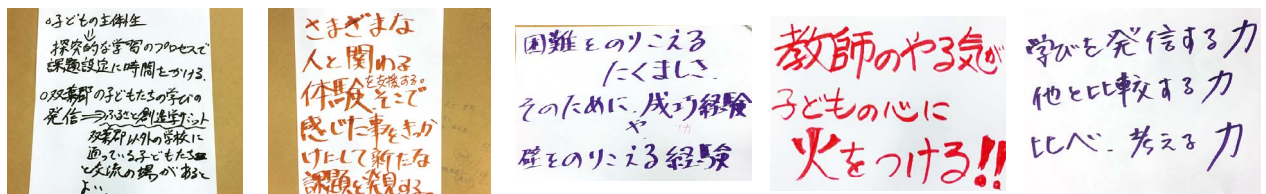 ○子どもの主体性
↓
探究的な学習のプロセスで
課題設定に時間をかける。
○双葉郡の子どもたちの学びの
発信⇒ふるさと創造学サミット
双葉郡以外の学校に
通っている子どもたち
と交流の場があると
よい。
さまざまな
人と関わる
体験を支援する。そこで
感じた事をきっか
けにして新たな
課題を発見する
困難をのりこえる
たくましさ。
そのために、成功経験
や
壁をのりこえる経験
教師のやる気が
子どもの心に
火をつける!!
学びを発信する力
他と比較する力
比べ、考える力